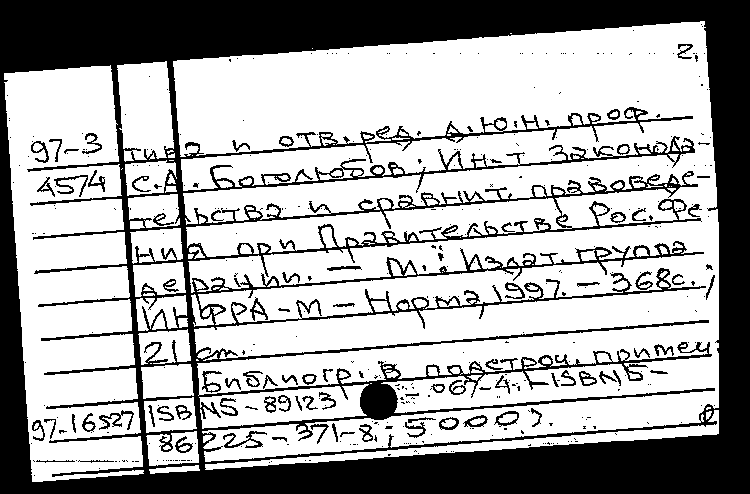 2.
97-3 тива и отв. ред. д.ю.н., проф.
4574 С.А. Боголюбов; Ин-т законода-
тельства и сравнит. правоведе-
ния при Правительстве Рос. Фе-
дерации. — М.: Издат. группа
ИНФРА-М — Норма, 1997. — 368с.;
21 см.
Библиогр. в подстроч. примеч.
97-16527 ISBN5-89123 - 067-4. - ISBN5-
86225-371-8; 5000).